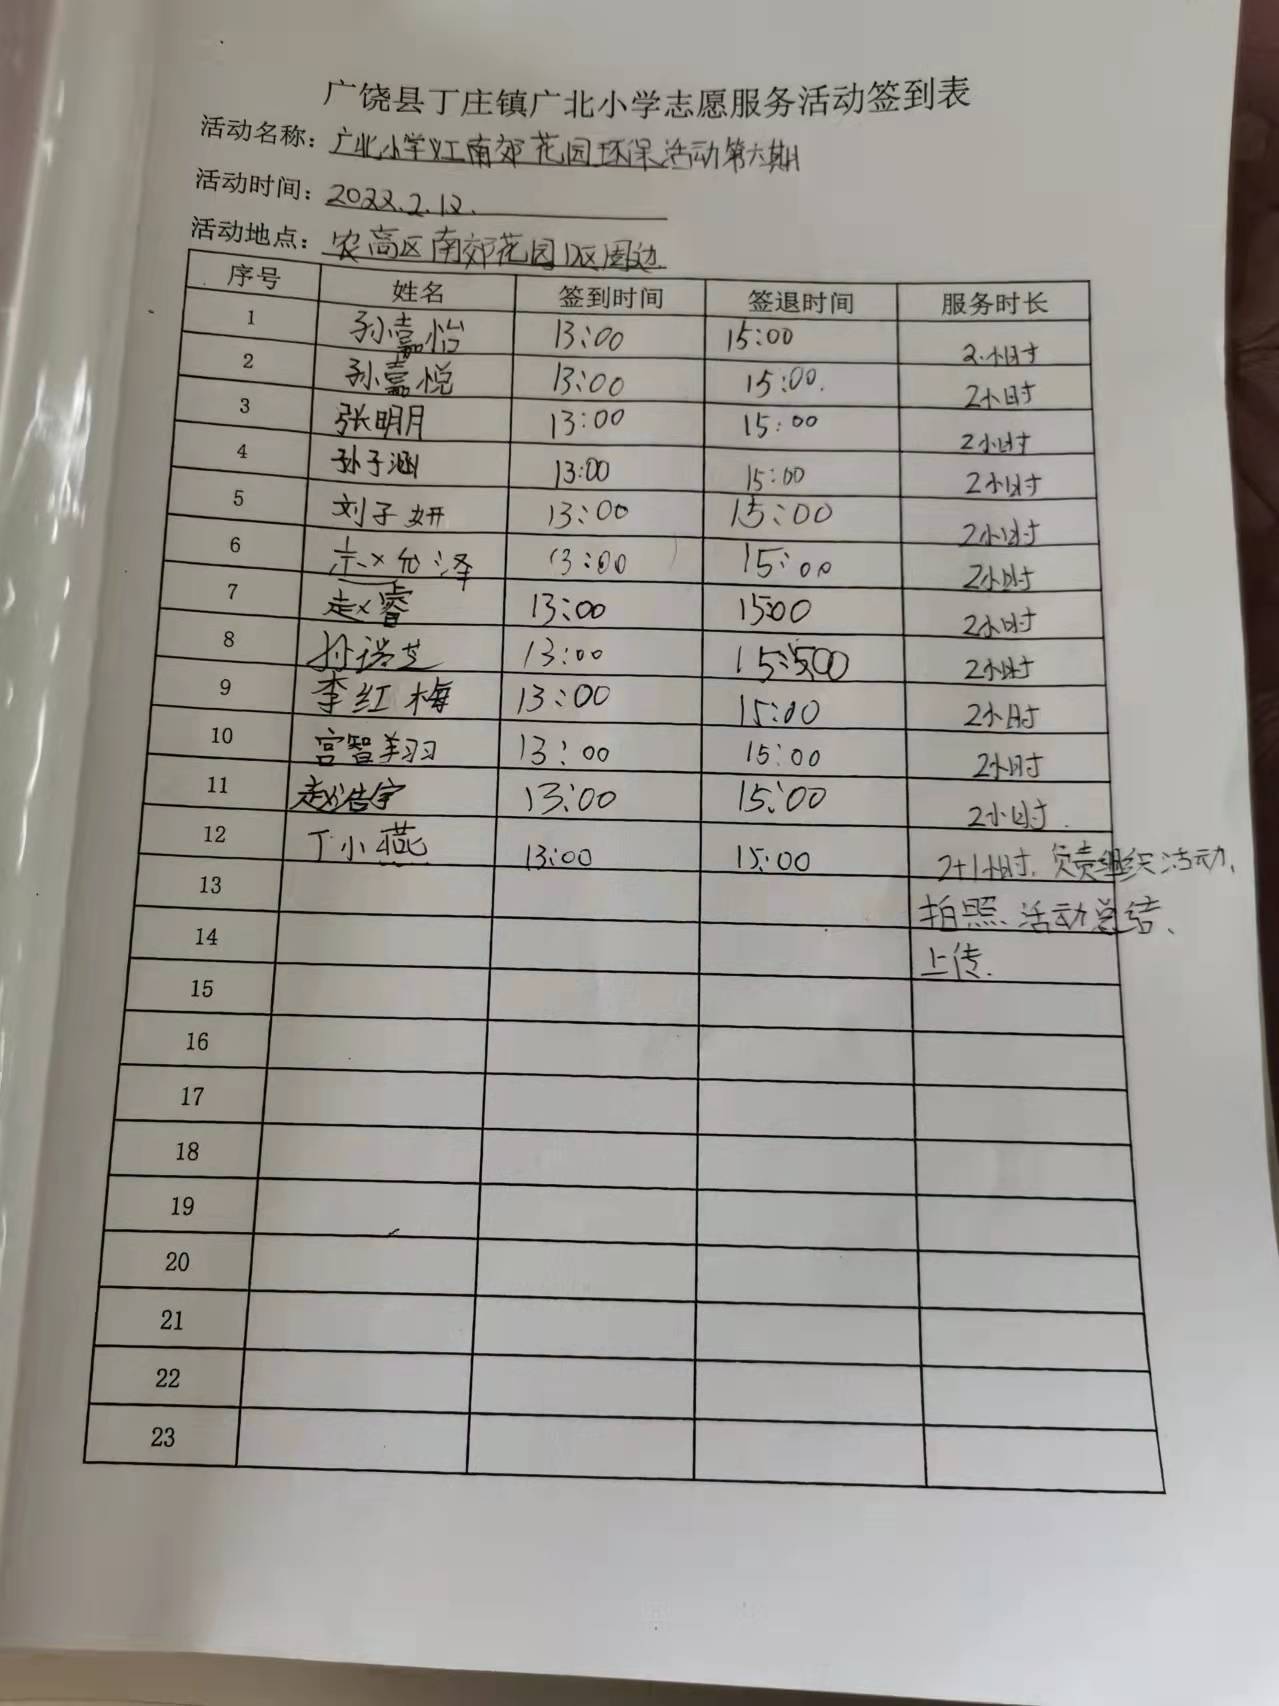 广饶县丁庄镇广北小学志愿服务活动签到表
活动名称：广北小学义工南郊花园环保活动第六期
活动时间：2022.2.12.
活动地点：农高区南郊花园区周边
序号 姓名 签到时间 签退时间 服务时长
1 孙嘉怡 13:00 15:00 2小时
2 孙嘉悦 13:00 15:00. 2小时
3 张明月 13:00 15:00 2小时
4 孙子涵 13:00 15:00 2小时
5 刘子妍 13:00 15:00 2小时
6 允泽 13:00 15:00 2小时
7 赵睿 13:00 15:00 2小时
8 孙诺芝 13:00 15:00 2小时
9 李红梅 13:00 15:00 2小时
10 宫智翔 13:00 15:00 2小时
11 赵浩宇 13:00 15:00 2小时.
12 丁小燕 13:00 15:00 2+1小时.负责组织活动、
13 拍照.活动总结、
14 上传.
15
16
17
18
19
20
21
22
23